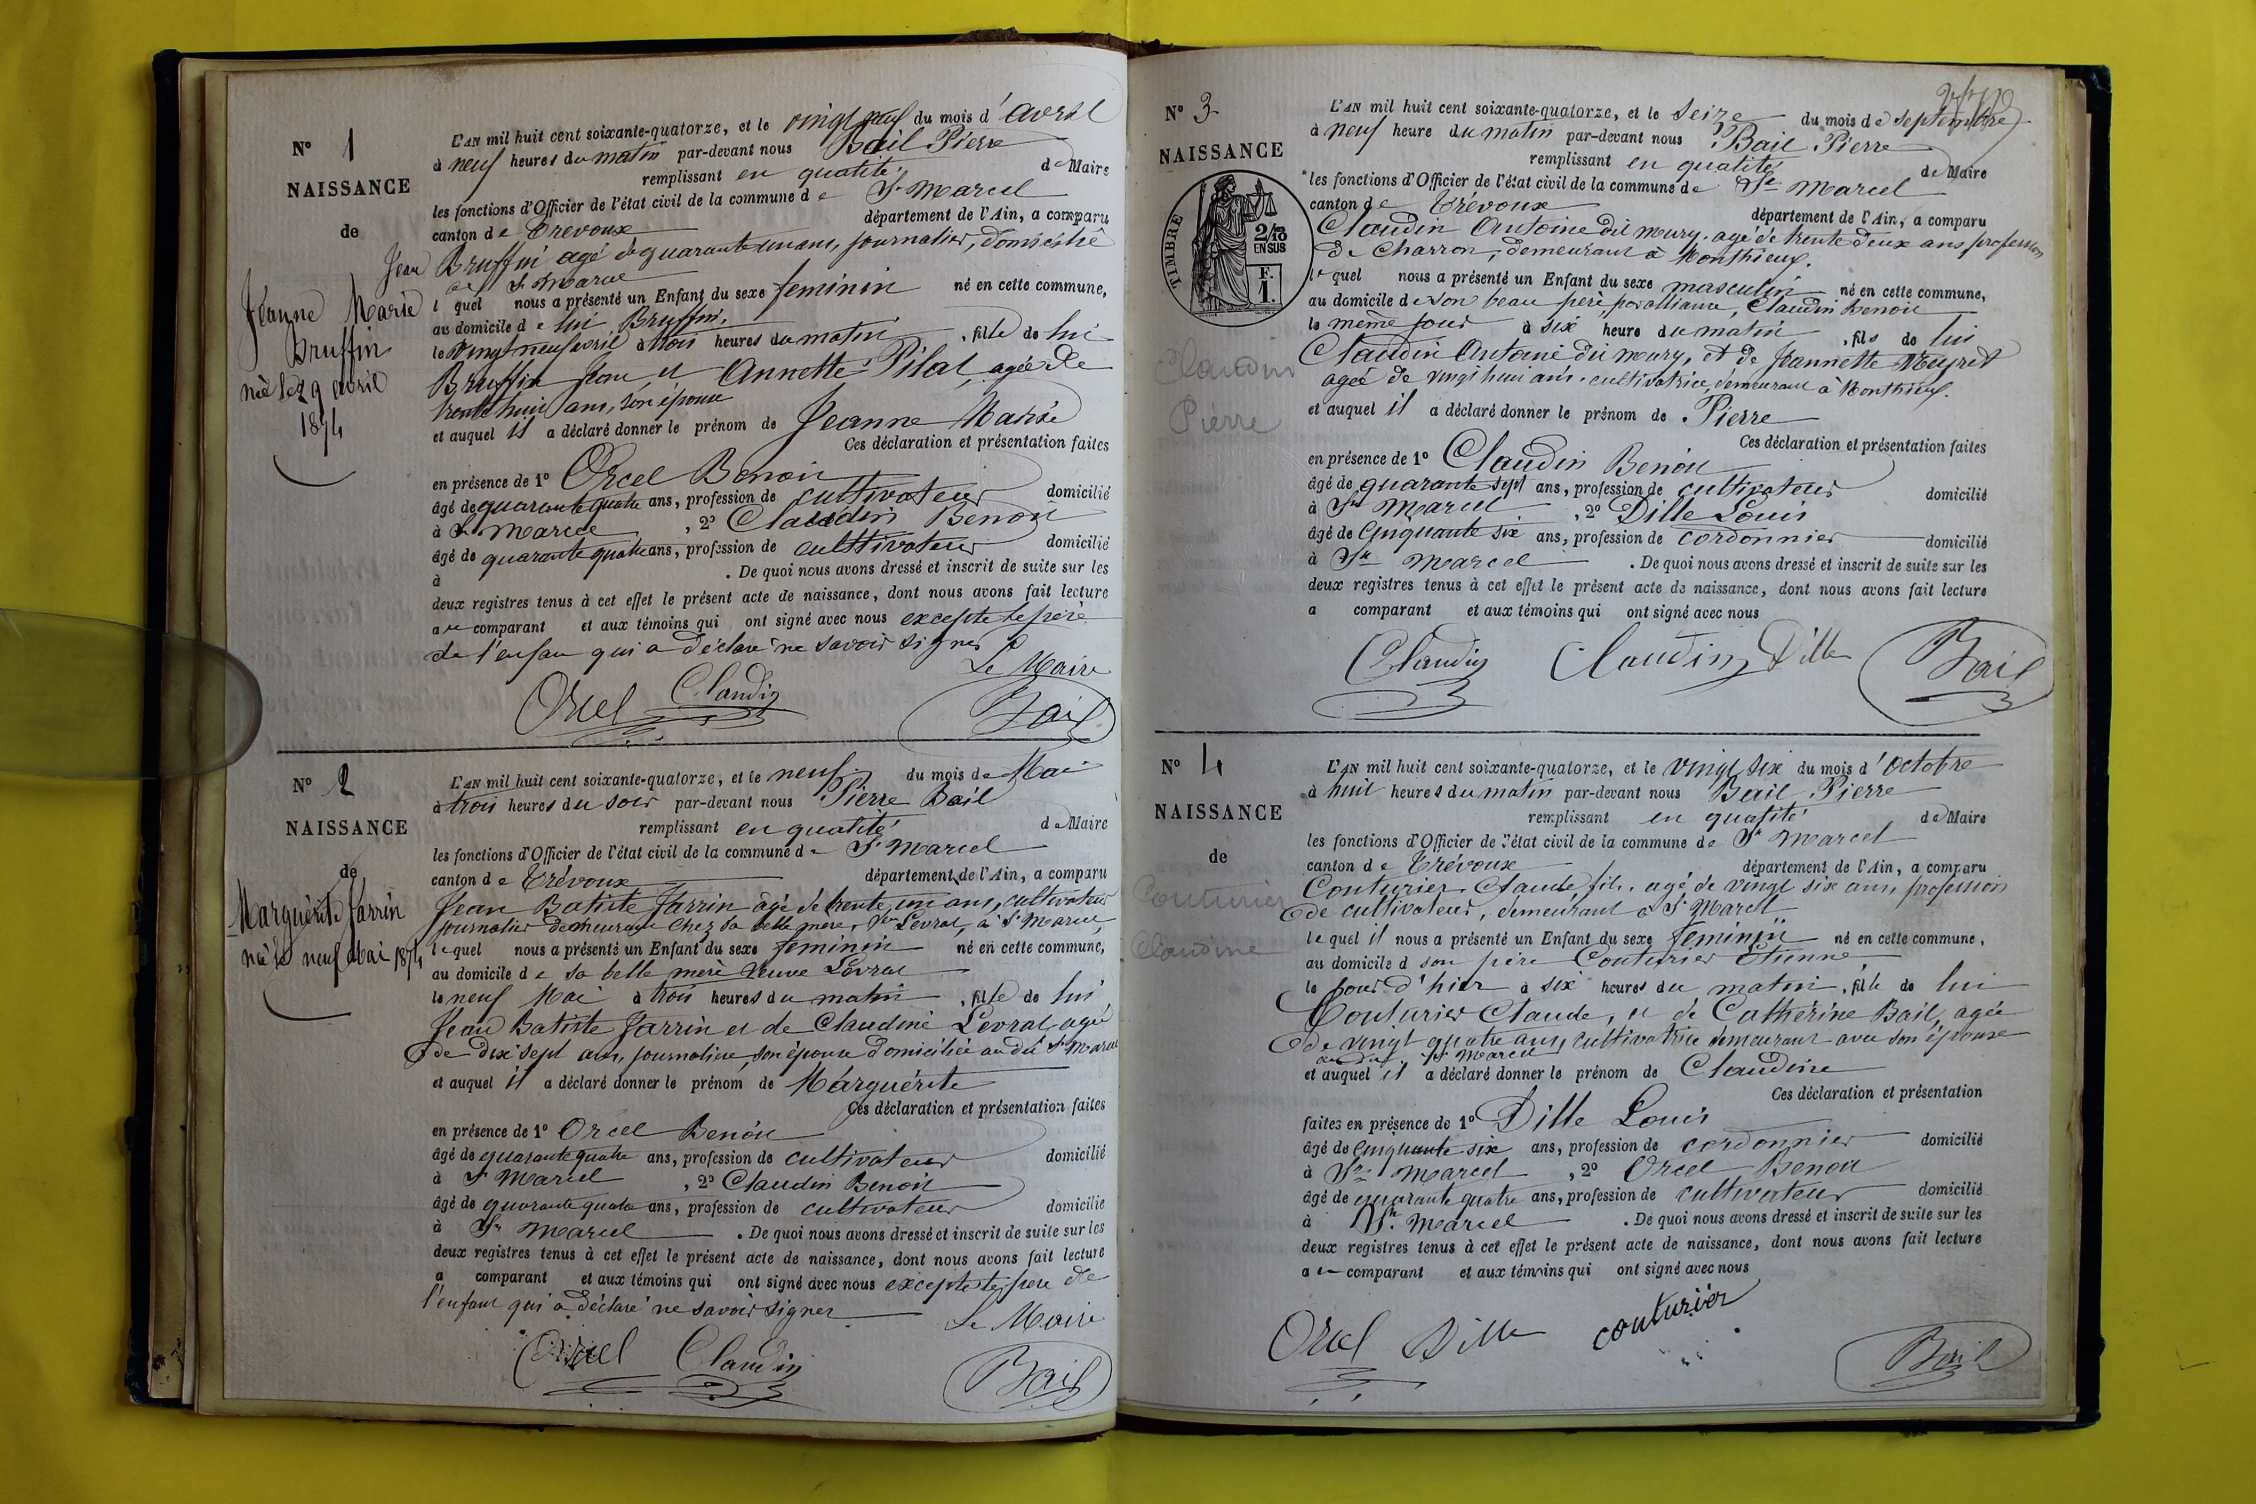 N° 1
NAISSANCE
de
Jeanne Marie
Bruffin
née le 29 avril
1874
L'AN mil huit cent soixante-quatorze, et le vingt neuf du mois d'avril
à neuf heures du matin par-devant nous Bail Pierre
remplissant en qualité de Maire
les fonctions d'Officier de l'état civil de la commune de St Marcel
canton de Trévoux département de l'Ain, a comparu
Jean Bruffin agé de quarante un ans, journalier, domicilié
à St Marcel
l quel nous a présenté un Enfant du sexe feminin né en cette commune,
au domicile de lui Bruffin,
le vingt neuf avril à trois heures du matin, fille de lui
Bruffin Jean et Annette Pilat, agée de
trente huit ans, son épouse
et auquel il a déclaré donner le prénom de Jeanne Marie
Ces déclaration et présentation faites
en présence de 1° Orcel Benoit
âgé de quarante quatre ans, profession de cultivateur domicilié
à St Marcel, 2° Claudin Benoit
âgé de quarante quatre ans, profession de culttivateur domicilié
à . De quoi nous avons dressé et inscrit de suite sur les
deux registres tenus à cet effet le présent acte de naissance, dont nous avons fait lecture
au comparant et aux témoins qui ont signé avec nous excepte le père
de l'enfan qui a déclaré ne savoir signer
Le Maire
Orcel Claudin Bail
N° 2
NAISSANCE
de
Marguérite Jarrin
née le neuf Mai 1874
L'AN mil huit cent soixante-quatorze, et le neuf du mois de Mai
à trois heures du soir par-devant nous Pierre Bail
remplissant en qualité de Maire
les fonctions d'Officier de l'état civil de la commune de St Marcel
canton de Trévoux département de l'Ain, a comparu
Jean Batiste Jarrin agé de trente un ans, cultivateur
journalier demeurant chez sa belle mere, Vve Levrat, à St Marcel,
lequel nous a présenté un Enfant du sexe feminin né en cette commune,
au domicile de sa belle merè veuve Levrat
le neuf Mai à trois heures du matin, fille de lui
Jean Batiste Jarrin et de Claudine Levrat, agée
de dix sept ans, journaliere, son épouse domiciliée audit St Marcel
et auquel il a déclaré donner le prénom de Marguérite
Ces déclaration et présentation faites
en présence de 1° Orcel Benoit
âgé de quarante quatre ans, profession de cultivateur domicilié
à St Marcel, 2° Claudin Benoit
âgé de quarante quatre ans, profession de cultivateur domicilié
à St Marcel . De quoi nous avons dressé et inscrit de suite sur les
deux registres tenus à cet effet le présent acte de naissance, dont nous avons fait lecture
a comparant et aux témoins qui ont signé avec nous excepte le pere de
l'enfant qui a déclaré ne savoir signer
Le Maire
Orcel Claudin Bail
N° 3
NAISSANCE
TIMBRE
2/10
EN SUS
F.
1.
Claudin
Pierre
L'AN mil huit cent soixante-quatorze, et le seize du mois de septembre
à neuf heure du matin par-devant nous Bail Pierre
remplissant en qualité de Maire
les fonctions d'Officier de l'état civil de la commune de St Marcel
canton de Trévoux département de l'Ain, a comparu
Claudin Antoine dit mury, agé de trente deux ans profession
de Charron, demeurant à Monthieux.
lequel nous a présenté un Enfant du sexe masculin né en cette commune,
au domicile de son beau père par alliance, Claudin Benoit
le même jour à six heure du matin, fils de lui
Claudin Antoine dit mury, et de Jeannette Meyret
agée de vingt huit ans, cultivatrice, demeurant à Monthieux.
et auquel il a déclaré donner le prénom de Pierre
Ces déclaration et présentation faites
en présence de 1° Claudin Benoit
âgé de quarante sept ans, profession de cultivateur domicilié
à St Marcel, 2° Dille Louis
âgé de Cinquante six ans, profession de cordonnier domicilié
à St Marcel . De quoi nous avons dressé et inscrit de suite sur les
deux registres tenus à cet effet le présent acte de naissance, dont nous avons fait lecture
a comparant et aux témoins qui ont signé avec nous
Claudin Claudin Dille Bail
N° 4
NAISSANCE
de
Couturier
Claudine
L'AN mil huit cent soixante-quatorze, et le vingt six du mois d'octobre
à huit heures du matin par-devant nous Bail Pierre
remplissant en qualité de Maire
les fonctions d'Officier de l'état civil de la commune de St Marcel
canton de Trévoux département de l'Ain, a comparu
Couturier Claude, fils, agé de vingt six ans, profession
de cultivateur, demeurant à St Marcel
lequel il nous a présenté un Enfant du sexe feminin né en cette commune,
au domicile d son père Couturier Etienne
le jour d'hier à six heures du matin, fille de lui
Couturier Claude, et de Catherine Bail, agée
de vingt quatre ans, cultivatrice demeurant avec son épouse
au dit St Marcel
et auquel il a déclaré donner le prénom de Claudine
Ces déclaration et présentation
faites en présence de 1° Dille Louis
âgé de Cinquante six ans, profession de cordonnier domicilié
à St Marcel, 2° Orcel Benoit
âgé de quarante quatre ans, profession de cultivateur domicilié
à St Marcel . De quoi nous avons dressé et inscrit de suite sur les
deux registres tenus à cet effet le présent acte de naissance, dont nous avons fait lecture
au comparant et aux témoins qui ont signé avec nous
Orcel Dille couturier Bail